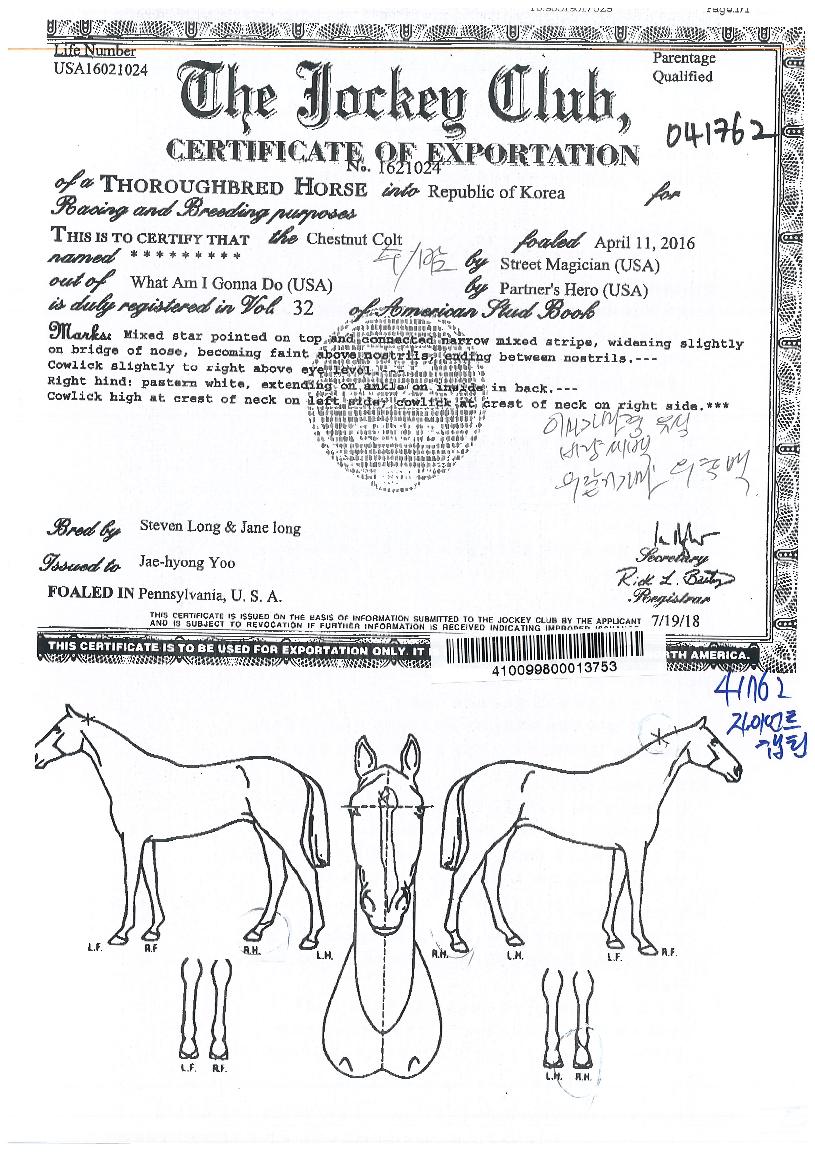 Life Number
USA16021024
Parentage
Qualified
The Jockey Club,
041762
CERTIFICATE OF EXPORTATION
No. 1621024
of a THOROUGHBRED HORSE into Republic of Korea for
Racing and Breeding purposes
THIS IS TO CERTIFY THAT the Chestnut Colt foaled April 11, 2016
named * * * * * * * * * by Street Magician (USA)
out of What Am I Gonna Do (USA) by Partner's Hero (USA)
is duly registered in Vol. 32 of American Stud Book
Marks: Mixed star pointed on top and connected narrow mixed stripe, widening slightly
on bridge of nose, becoming faint above nostrils, ending between nostrils.---
Cowlick slightly to right above eye level.---
Right hind: pastern white, extending on ankle on inside in back.---
Cowlick high at crest of neck on left side; cowlick at crest of neck on right side.***
Bred by Steven Long & Jane long
Issued to Jae-hyong Yoo
Secretary
Registrar
FOALED IN Pennsylvania, U. S. A.
THIS CERTIFICATE IS ISSUED ON THE BASIS OF INFORMATION SUBMITTED TO THE JOCKEY CLUB BY THE APPLICANT
AND IS SUBJECT TO REVOCATION IF FURTHER INFORMATION IS RECEIVED INDICATING IMPROPER
7/19/18
THIS CERTIFICATE IS TO BE USED FOR EXPORTATION ONLY. IT
TH AMERICA.
410099800013753
41762
L.F. R.F R.H. L.H. R.H. L.H. L.F. R.F.
L.F. R.F. L.H. R.H.